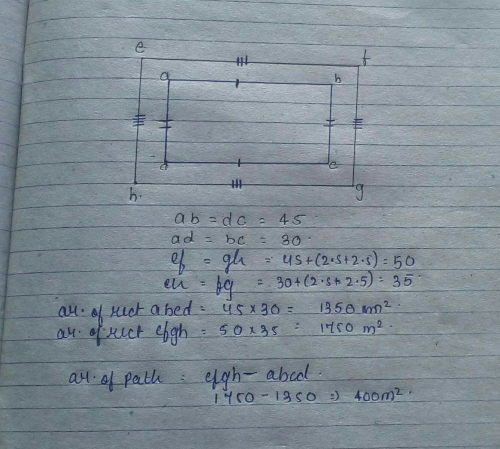 e f
a b
d c
h. g
ab = dc = 45
ad = bc = 30
ef = gh = 45+(2.5+2.5) = 50
eh = fg = 30+(2.5+2.5) = 35
ar. of rect abcd = 45×30 = 1350 m².
ar. of rect efgh = 50×35 = 1750 m².
ar. of path = efgh – abcd.
1750 – 1350 ⇒ 400m².